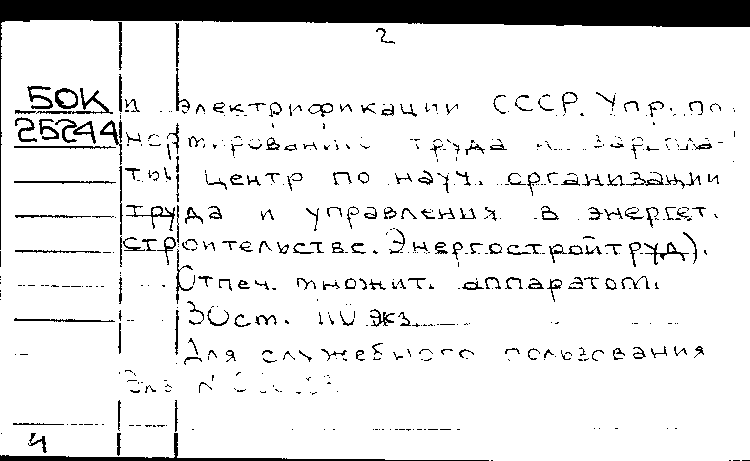 2
БОК и электрификации СССР. Упр. по
25244 нормированию труда и зарпла-
ты Центр по науч. организации
труда и управления в энергет.
строительстве. Энергостройтруд).
Отпеч. множит. аппаратом.
30 ст. 110 экз.
Для служебного пользования
Экз N
4